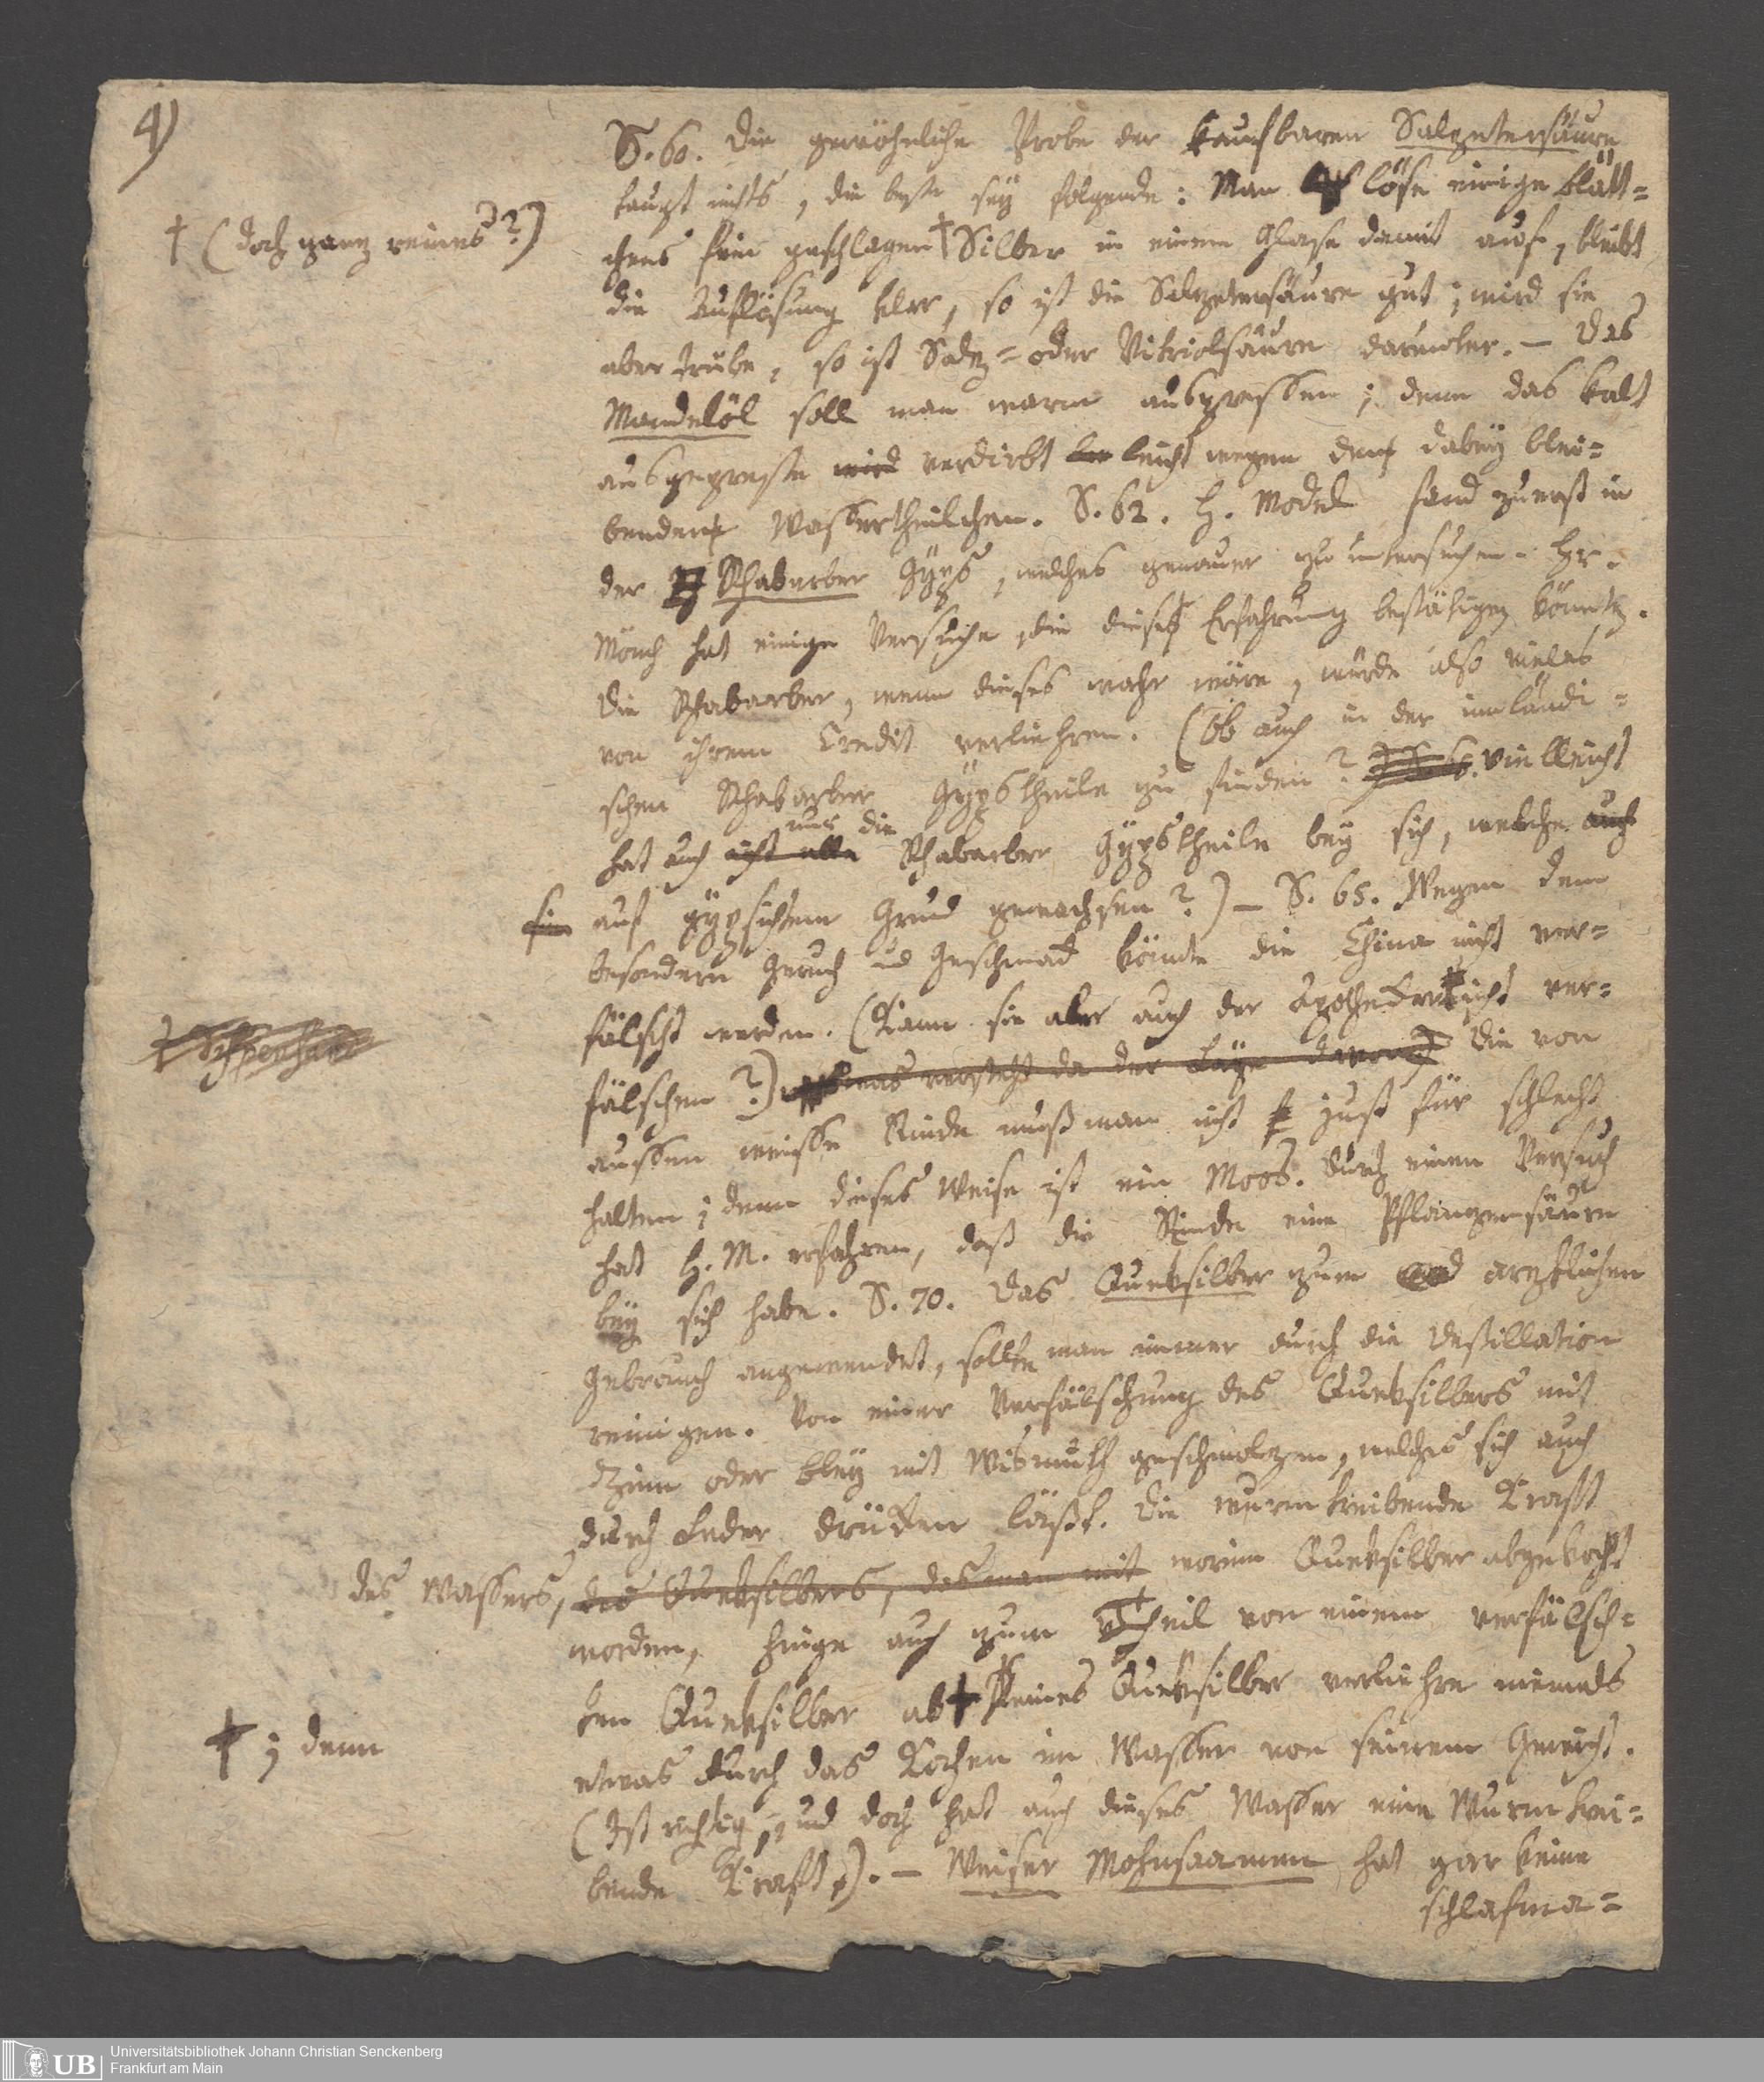 4)
S. 60. Die gewöhnliche Probe der kaufbaren Salpetersäure
taugt nichts, die beste sey folgende: Man löse einige Blätt=
† (doch ganz reines?)
chens fein geschlagen † Silber in einem Glase damit auf, bleibt
die Auflösung klar, so ist die Salpetersäure gut; wird sie
aber trübe, so ist Salz= oder Vitriolsäure darunter. — Das
Mandelöl soll man warm auspressen; denn das kalt
ausgepreste wird verdirbt leicht wegen den dabey blei=
benden Wassertheilchen. S. 62. H. Model fand zuerst in
der Rhabarber Gyps, welches genauer zu untersuchen. Hr.
Mönch hat einige Versuche, die diese Erfahrung bestätigen könnten.
Die Rhabarber, wenn dieses wahr wäre, würde also vieles
von ihrem Credit verliehren. (Ob auch in der inländi=
schen Rhabarber Gypstheile zu finden? Vielleicht
nur die
hat auch nicht alle Rhabarber Gypstheile bey sich, welche auch
sie auf gypsichtem Grund gewachsen?) — S. 65. Wegen dem
besondern Geruch und Geschmack könnte die China nicht ver=
fälscht werden. (Kann sie aber auch der Apotheker nicht ver=
fälschen?) was versteht da der Laye davon?) Die von
aussen weisse Rinde muß man nicht just für schlecht
halten; denn dieses Weise ist ein Moos. Durch einen Versuch
hat H. M. erfahren, daß die Rinde eine Pflanzensäure
bey sich habe. S. 70. Das Queksilber zum arztlichen
Gebrauch angewendet, sollte man immer durch die Destillation
reinigen. Von einer Verfälschung des Queksilbers mit
Zinn oder Bley mit Wismuth geschmolzen, welches sich auch
durch Leder drücken läßt. Die wurmtreibende Kraft
des Wassers, des Queksilbers, das man mit worinn Queksilber abgekocht
worden, hinge auch zum Theil von einem verfälsch=
ten Queksilber ab † Reines Queksilber verliehre niemals
† ; denn
etwas durch das Kochen im Wasser von seinem Gewicht.
(Ist richtig, und doch hat auch dieses Wasser eine Wurmtrei=
bende Kraft). — Weiser Mohnsaamen hat gar keine
schlafma=
UB
Universitätsbibliothek Johann Christian Senckenberg
Frankfurt am Main